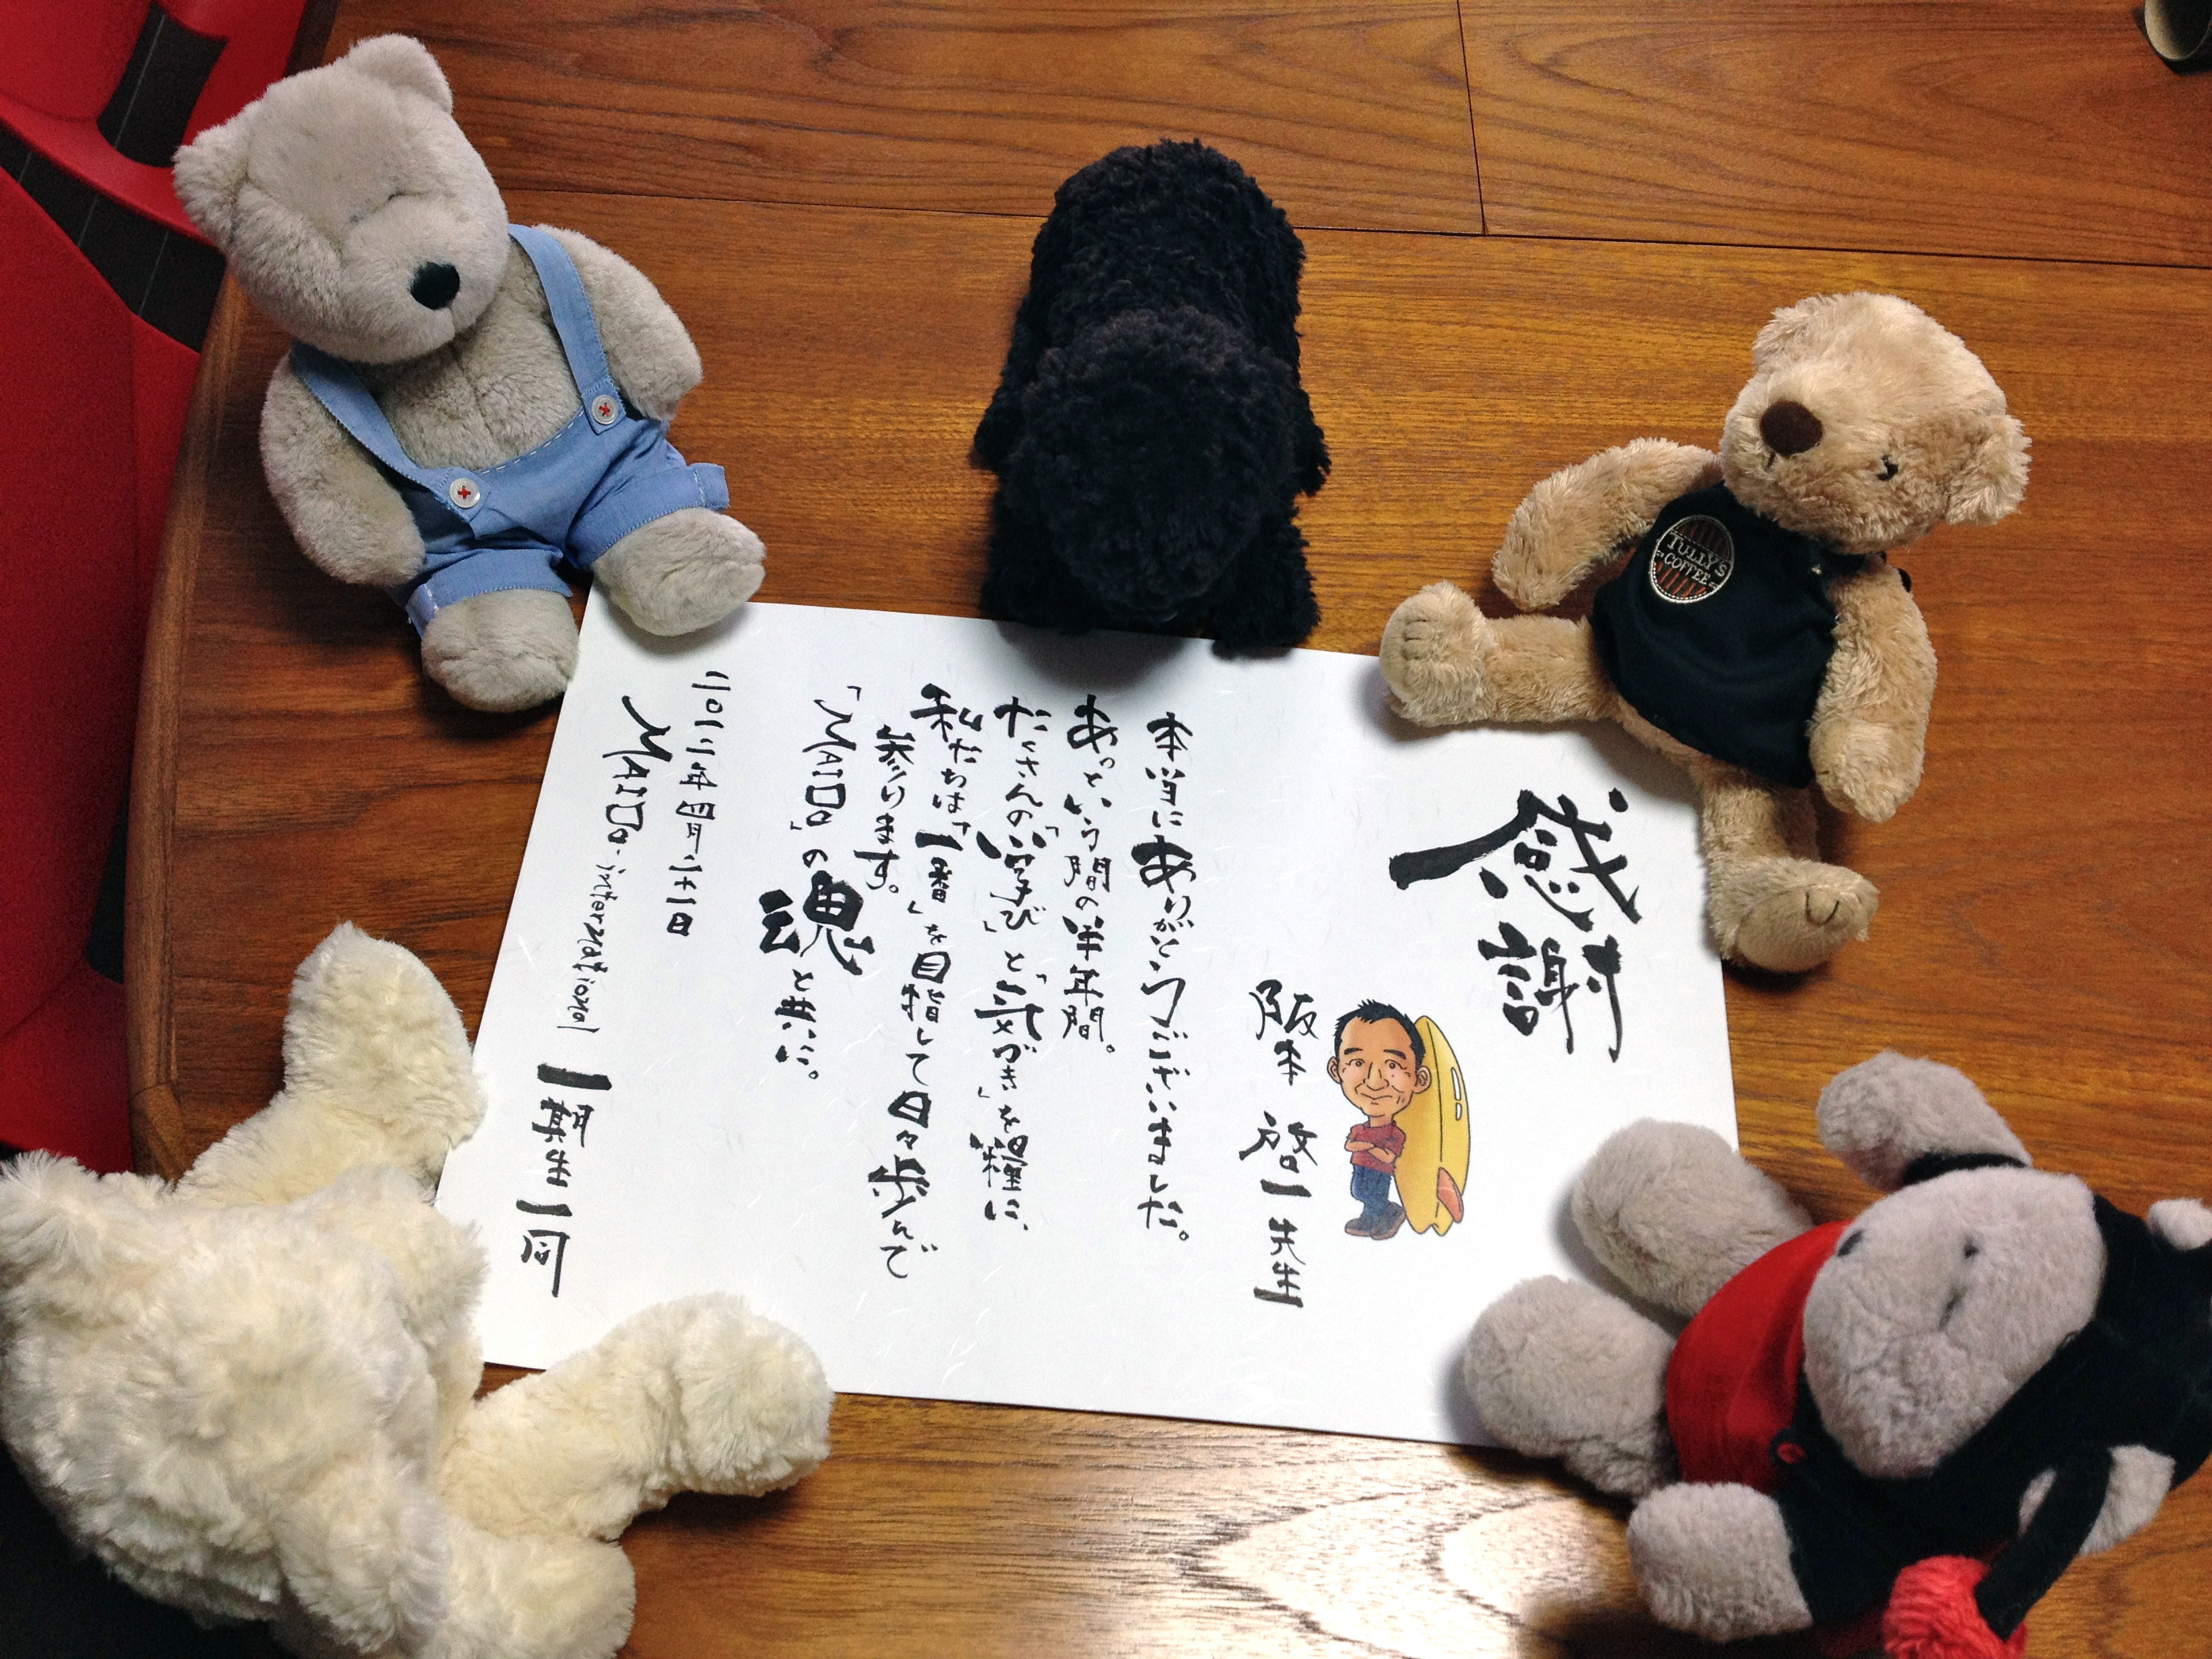 感謝
阪本 啓一 先生
本当にありがとうございました。
あっという間の半年間。
たくさんの「学び」と「気づき」を糧に、
私たちは「一番」を目指して日々歩んで
参ります。
「MAIDO」の魂と共に。
二〇一二年四月二十一日
MAIDO-international 一期生一同
TULLY'S
COFFEE